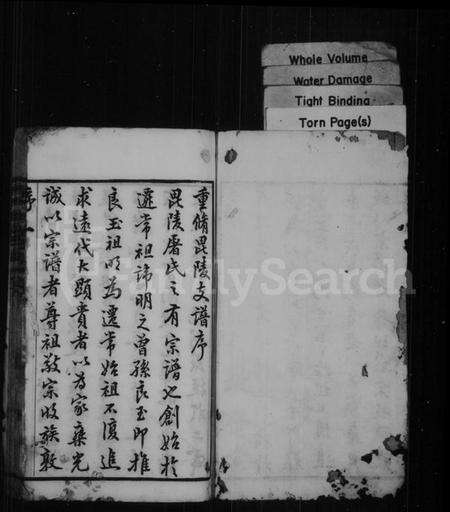 Whole Volume
Water Damage
Tight Binding
Torn Page(s)
重脩毘陵支譜序
毘陵屠氏之有宗譜也創始於
遷常祖諱明之曾孫良玉即推
良玉祖明為遷常始祖不復追
求遠代大顯貴者以為家乘光
誠以宗譜者尊祖敬宗收族敦
序
FamilySearch